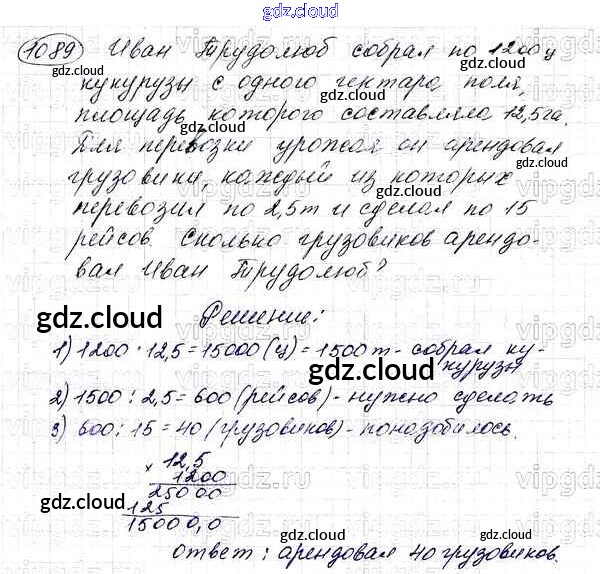 gdz.cloud
1089 Иван Трудолюб собрал по 1200 ц
gdz.cloud gdz.cloud
кукурузы с одного гектара поля,
площадь которого составляла 12,5 га.
gdz.cloud
Для перевозки урожая он арендовал
грузовики, каждый из которых
перевозил по 2,5 т и сделал по 15
рейсов. Сколько грузовиков арендо-
вал Иван Трудолюб?
gdz.cloud
Решение:
gdz.cloud
1) 1200 · 12,5 = 15000 (ц) = 1500 т - собрал ку-
курузы
gdz.cloud
2) 1500 : 2,5 = 600 (рейсов) - нужно сделать
3) 600 : 15 = 40 (грузовиков) - понадобилось.
× 12,5
1200
25000
gdz.cloud gdz.cloud
125
15000,0
gdz.cloud
Ответ: арендовал 40 грузовиков.
gdz.cloud